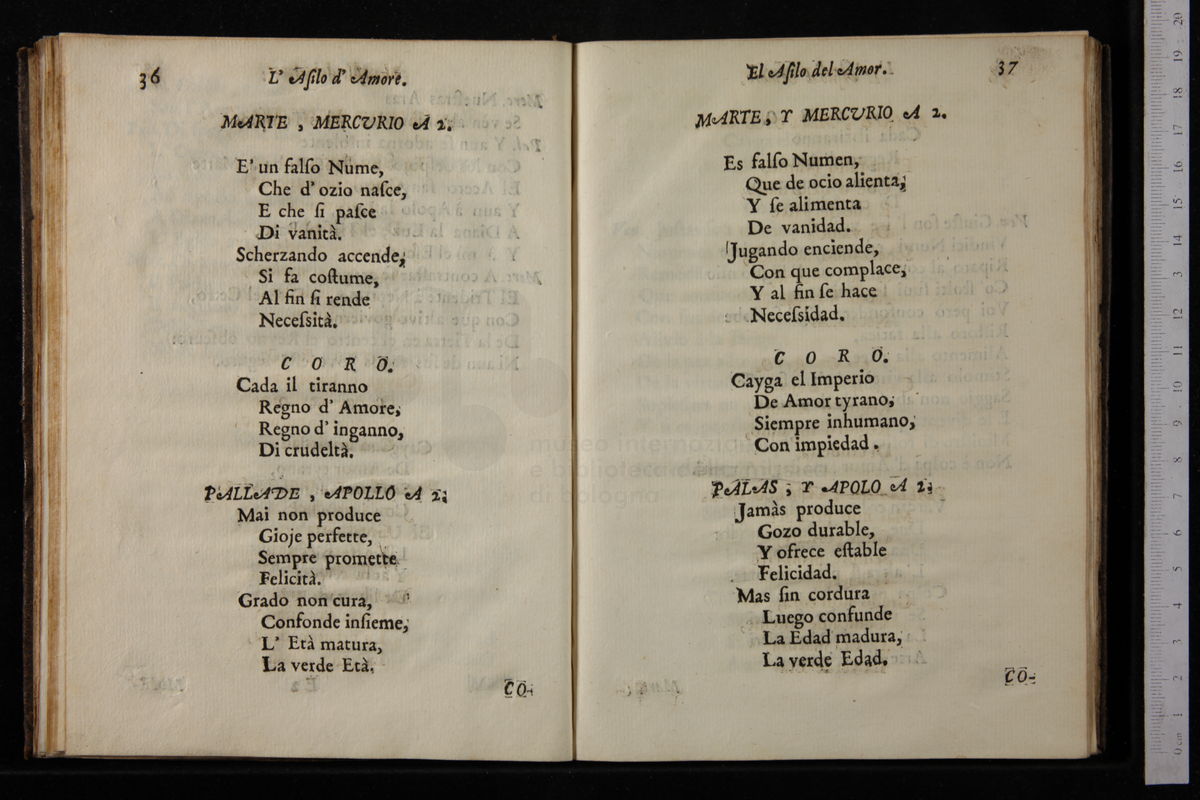 36
L' Aſilo d' Amore.
MARTE, MERCURIO A 2.
E' un falſo Nume,
Che d' ozio naſce,
E che ſi paſce
Di vanità.
Scherzando accende,
Si fa coſtume,
Al fin ſi rende
Neceſsità.
CORO.
Cada il tiranno
Regno d' Amore,
Regno d' inganno,
Di crudeltà.
PALLADE, APOLLO A 2.
Mai non produce
Gioje perfette,
Sempre promette
Felicità.
Grado non cura,
Confonde inſieme,
L' Età matura,
La verde Età.
CO-
El Aſilo del Amor.
37
MARTE, Y MERCURIO A 2.
Es falſo Numen,
Que de ocio alienta,
Y ſe alimenta
De vanidad.
Jugando enciende,
Con que complace,
Y al fin ſe hace
Neceſsidad.
CORO.
Cayga el Imperio
De Amor tyrano,
Siempre inhumano,
Con impiedad.
PALAS, Y APOLO A 2.
Jamàs produce
Gozo durable,
Y ofrece eſtable
Felicidad.
Mas ſin cordura
Luego confunde
La Edad madura,
La verde Edad.
CO-
museo internazi
e biblioteca della musica
di bologna